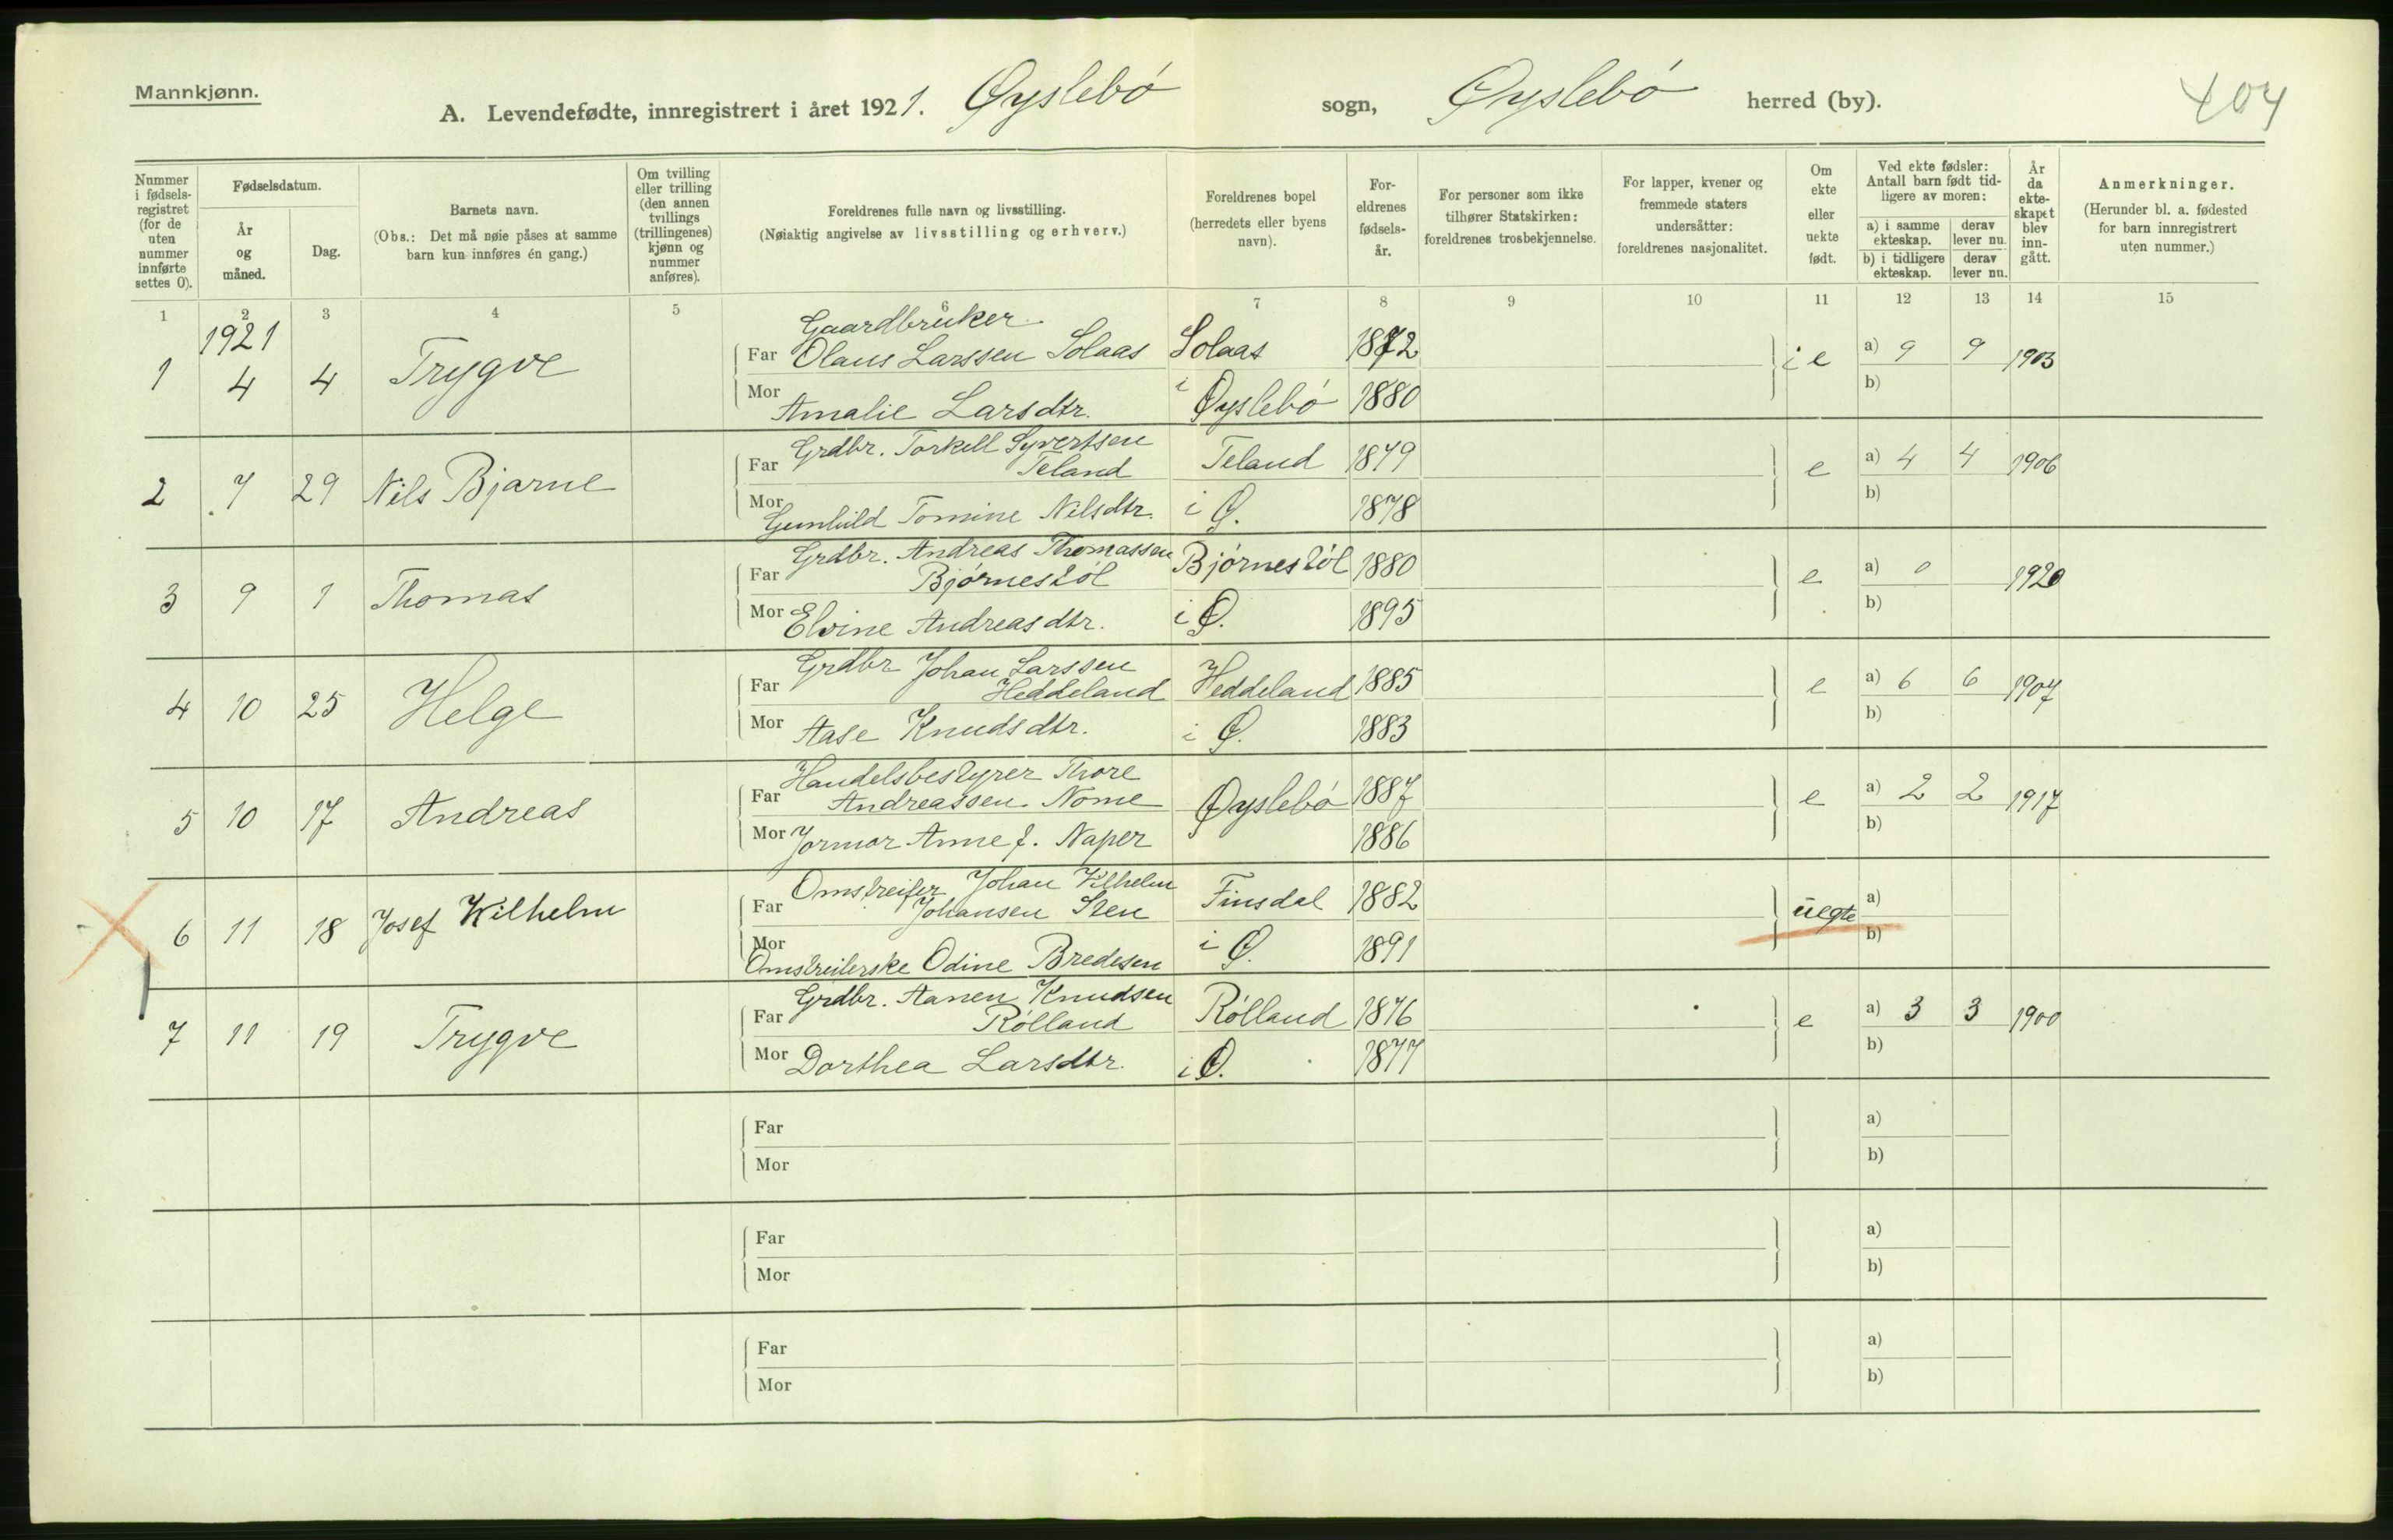 Mannkjønn.
A. Levendefødte, innregistrert i året 1921. Øyslebö sogn, Øyslebö herred (by). 404
Nummer i fødsels-registret (for de uten nummer innførte settes 0).
Fødselsdatum.
År og måned.
Dag.
Barnets navn.
(Obs.: Det må nøie påses at samme barn kun innføres én gang.)
Om tvilling eller trilling (den annen tvillings (trillingenes) kjønn og nummer anføres).
Foreldrenes fulle navn og livsstilling.
(Nøiaktig angivelse av livsstilling og erhverv.)
Foreldrenes bopel (herredets eller byens navn).
For-eldrenes fødsels-år.
For personer som ikke tilhører Statskirken: foreldrenes trosbekjennelse.
For lapper, kvener og fremmede staters undersåtter: foreldrenes nasjonalitet.
Om ekte eller uekte født.
Ved ekte fødsler: Antall barn født tid-ligere av moren:
a) i samme ekteskap.
derav lever nu.
b) i tidligere ekteskap.
derav lever nu.
År da ekte-skapet blev inn-gått.
Anmerkninger.
(Herunder bl. a. fødested for barn innregistrert uten nummer.)
1 2 3 4 5 6 7 8 9 10 11 12 13 14 15
1921
Gaardbruker
1 4 4 Trygve Far Olaus Larssen Solaas Solaas 1872 i e a) 9 9 1903
Mor Amalie Larsdtr. i Øyslebö 1880 b)
Grdbr. Torkell Syvertsen
2 7 29 Nils Bjarne Far Teland Teland 1879 e a) 4 4 1906
Mor Gunhild Tomine Nilsdtr. i Ø. 1878 b)
Grdbr. Andreas Thomassen
3 9 1 Thomas Far Bjørnestöl Bjørnestöl 1880 e a) 0 1920
Mor Elvine Andreasdtr. i Ø. 1895 b)
Grdbr Johan Larssen
4 10 25 Helge Far Heddeland Heddeland 1885 e a) 6 6 1907
Mor Aase Knudsdtr. i Ø. 1883 b)
Handelsbestyrer Thore
5 10 17 Andreas Far Andreassen Nome Øyslebö 1887 e a) 2 2 1917
Mor Jormor Anne f. Naper 1886 b)
Omstreifer Johan Vilhelm
6 11 18 Josef Wilhelm Far Johansen Sten Finsdal 1882 uegte a)
Mor Omstreiferske Odine Bredesen i Ø. 1891 b)
Grdbr. Aanen Knudsen
7 11 19 Trygve Far Rölland Rölland 1876 e a) 3 3 1900
Mor Dorthea Larsdtr. i Ø. 1877 b)
Far a)
Mor b)
Far a)
Mor b)
Far a)
Mor b)